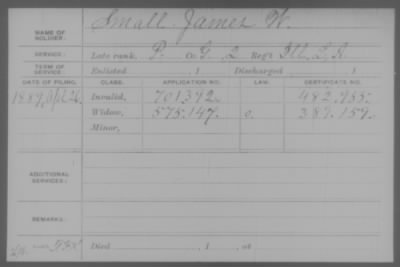 NAME OF SOLDIER: Small, James W.
SERVICE: Late rank, P. Co. G, 2 Reg't Ill. L. A.
TERM OF SERVICE: Enlisted , 1 Discharged , 1
DATE OF FILING. CLASS. APPLICATION NO. LAW. CERTIFICATE NO.
1889, Apl. 26. Invalid, 701392. 482.955.
Widow, 575.147. O. 389.159.
Minor,
ADDITIONAL SERVICES:
REMARKS:
Died , 1 , at